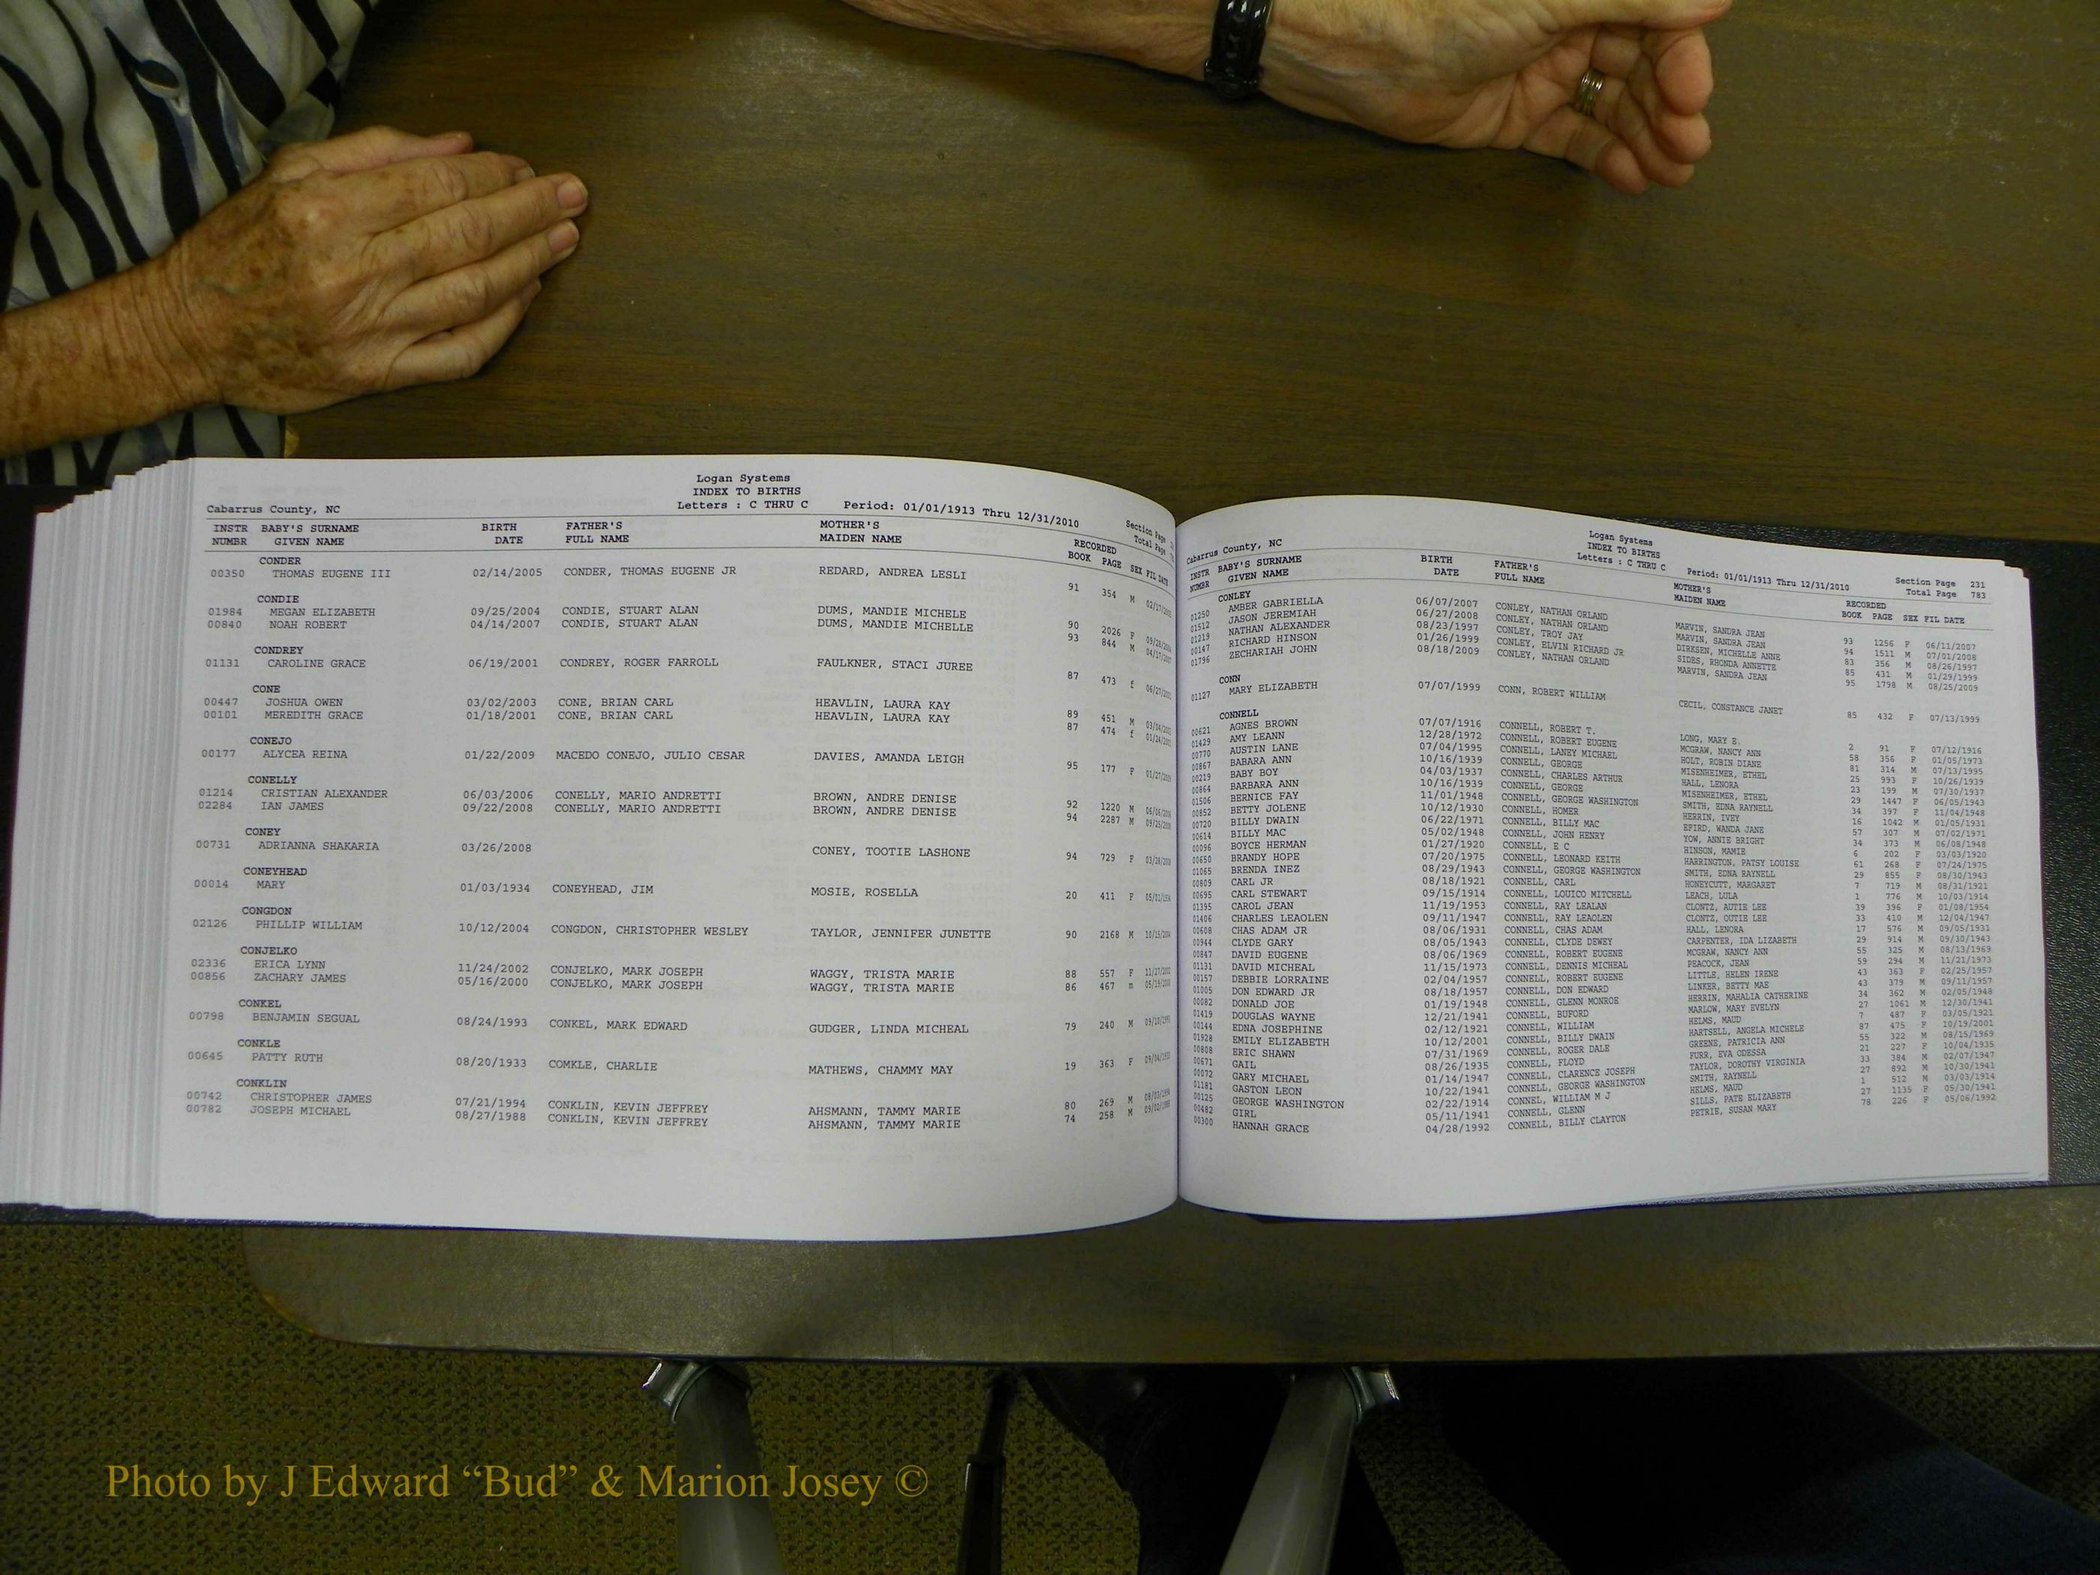 Logan Systems
INDEX TO BIRTHS
Cabarrus County, NC Letters : C THRU C Period: 01/01/1913 Thru 12/31/2010
Section Page
Total Page
INSTR BABY'S SURNAME BIRTH FATHER'S MOTHER'S RECORDED
NUMBR GIVEN NAME DATE FULL NAME MAIDEN NAME BOOK PAGE SEX FIL DATE
CONDER
00350 THOMAS EUGENE III 02/14/2005 CONDER, THOMAS EUGENE JR REDARD, ANDREA LESLI 91 354 M
CONDIE
01984 MEGAN ELIZABETH 09/25/2004 CONDIE, STUART ALAN DUMS, MANDIE MICHELE 90 2026 F
00840 NOAH ROBERT 04/14/2007 CONDIE, STUART ALAN DUMS, MANDIE MICHELLE 93 844 M
CONDREY
01131 CAROLINE GRACE 06/19/2001 CONDREY, ROGER FARROLL FAULKNER, STACI JUREE 87 473 f
CONE
00447 JOSHUA OWEN 03/02/2003 CONE, BRIAN CARL HEAVLIN, LAURA KAY 89 451 M
00101 MEREDITH GRACE 01/18/2001 CONE, BRIAN CARL HEAVLIN, LAURA KAY 87 474 f
CONEJO
00177 ALYCEA REINA 01/22/2009 MACEDO CONEJO, JULIO CESAR DAVIES, AMANDA LEIGH 95 177 F
CONELLY
01214 CRISTIAN ALEXANDER 06/03/2006 CONELLY, MARIO ANDRETTI BROWN, ANDRE DENISE 92 1220 M
02284 IAN JAMES 09/22/2008 CONELLY, MARIO ANDRETTI BROWN, ANDRE DENISE 94 2287 M
CONEY
00731 ADRIANNA SHAKARIA 03/26/2008 CONEY, TOOTIE LASHONE 94 729 F
CONEYHEAD
00014 MARY 01/03/1934 CONEYHEAD, JIM MOSIE, ROSELLA 20 411 F
CONGDON
02126 PHILLIP WILLIAM 10/12/2004 CONGDON, CHRISTOPHER WESLEY TAYLOR, JENNIFER JUNETTE 90 2168 M 10/15/2004
CONJELKO
02336 ERICA LYNN 11/24/2002 CONJELKO, MARK JOSEPH WAGGY, TRISTA MARIE 88 557 F 11/27/2002
00856 ZACHARY JAMES 05/16/2000 CONJELKO, MARK JOSEPH WAGGY, TRISTA MARIE 86 467 m
CONKEL
00798 BENJAMIN SEGUAL 08/24/1993 CONKEL, MARK EDWARD GUDGER, LINDA MICHEAL 79 240 M
CONKLE
00645 PATTY RUTH 08/20/1933 COMKLE, CHARLIE MATHEWS, CHAMMY MAY 19 363 F
CONKLIN
00742 CHRISTOPHER JAMES 07/21/1994 CONKLIN, KEVIN JEFFREY AHSMANN, TAMMY MARIE 80 269 M
00782 JOSEPH MICHAEL 08/27/1988 CONKLIN, KEVIN JEFFREY AHSMANN, TAMMY MARIE 74 258 M
Logan Systems
INDEX TO BIRTHS
Cabarrus County, NC Letters : C THRU C Period: 01/01/1913 Thru 12/31/2010
Section Page 231
Total Page 783
INSTR BABY'S SURNAME BIRTH FATHER'S MOTHER'S RECORDED
NUMBR GIVEN NAME DATE FULL NAME MAIDEN NAME BOOK PAGE SEX FIL DATE
CONLEY
01250 AMBER GABRIELLA 06/07/2007 CONLEY, NATHAN ORLAND MARVIN, SANDRA JEAN 93 1256 F 06/11/2007
01512 JASON JEREMIAH 06/27/2008 CONLEY, NATHAN ORLAND MARVIN, SANDRA JEAN 94 1511 M 07/01/2008
01219 NATHAN ALEXANDER 08/23/1997 CONLEY, TROY JAY DIRKSEN, MICHELLE ANNE 83 356 M 08/26/1997
00147 RICHARD HINSON 01/26/1999 CONLEY, ELVIN RICHARD JR SIDES, RHONDA ANNETTE 85 431 M 01/29/1999
01796 ZECHARIAH JOHN 08/18/2009 CONLEY, NATHAN ORLAND MARVIN, SANDRA JEAN 95 1798 M 08/25/2009
CONN
01127 MARY ELIZABETH 07/07/1999 CONN, ROBERT WILLIAM CECIL, CONSTANCE JANET 85 432 F 07/13/1999
CONNELL
00621 AGNES BROWN 07/07/1916 CONNELL, ROBERT T. LONG, MARY E. 2 91 F 07/12/1916
01429 AMY LEANN 12/28/1972 CONNELL, ROBERT EUGENE MCGRAW, NANCY ANN 58 356 F 01/05/1973
00770 AUSTIN LANE 07/04/1995 CONNELL, LANEY MICHAEL HOLT, ROBIN DIANE 81 314 M 07/13/1995
00867 BABARA ANN 10/16/1939 CONNELL, GEORGE MISENHEIMER, ETHEL 25 993 F 10/26/1939
00219 BABY BOY 04/03/1937 CONNELL, CHARLES ARTHUR HALL, LENORA 23 199 M 07/30/1937
00864 BARBARA ANN 10/16/1939 CONNELL, GEORGE MISENHEIMER, ETHEL 29 1447 F 06/05/1943
01506 BERNICE FAY 11/01/1948 CONNELL, GEORGE WASHINGTON SMITH, EDNA RAYNELL 34 397 F 11/04/1948
00852 BETTY JOLENE 10/12/1930 CONNELL, HOMER HERRIN, IVEY 16 1042 M 01/05/1931
00720 BILLY DWAIN 06/22/1971 CONNELL, BILLY MAC EFIRD, WANDA JANE 57 307 M 07/02/1971
00614 BILLY MAC 05/02/1948 CONNELL, JOHN HENRY YOW, ANNIE BRIGHT 34 373 M 06/08/1948
00096 BOYCE HERMAN 01/27/1920 CONNELL, E C HINSON, MAMIE 6 202 F 03/03/1920
00650 BRANDY HOPE 07/20/1975 CONNELL, LEONARD KEITH HARRINGTON, PATSY LOUISE 61 268 F 07/24/1975
01065 BRENDA INEZ 08/29/1943 CONNELL, GEORGE WASHINGTON SMITH, EDNA RAYNELL 29 855 F 08/30/1943
00809 CARL JR 08/18/1921 CONNELL, CARL HONEYCUTT, MARGARET 7 719 M 08/31/1921
00695 CARL STEWART 09/15/1914 CONNELL, LOUICO MITCHELL LEACH, LULA 1 776 M 10/03/1914
01395 CAROL JEAN 11/19/1953 CONNELL, RAY LEALAN CLONTZ, AUTIE LEE 39 396 F 01/08/1954
01406 CHARLES LEAOLEN 09/11/1947 CONNELL, RAY LEAOLEN CLONTZ, OUTIE LEE 33 410 M 12/04/1947
00608 CHAS ADAM JR 08/06/1931 CONNELL, CHAS ADAM HALL, LENORA 17 576 M 09/05/1931
00944 CLYDE GARY 08/05/1943 CONNELL, CLYDE DEWEY CARPENTER, IDA LIZABETH 29 914 M 09/30/1943
00847 DAVID EUGENE 08/06/1969 CONNELL, ROBERT EUGENE MCGRAW, NANCY ANN 55 325 M 08/13/1969
01131 DAVID MICHEAL 11/15/1973 CONNELL, DENNIS MICHEAL PEACOCK, JEAN 59 294 M 11/21/1973
00157 DEBBIE LORRAINE 02/04/1957 CONNELL, ROBERT EUGENE LITTLE, HELEN IRENE 43 363 F 02/25/1957
01005 DON EDWARD JR 08/18/1957 CONNELL, DON EDWARD LINKER, BETTY MAE 43 379 M 09/11/1957
00082 DONALD JOE 01/19/1948 CONNELL, GLENN MONROE HERRIN, MAHALIA CATHERINE 34 362 M 02/05/1948
01419 DOUGLAS WAYNE 12/21/1941 CONNELL, BUFORD MARLOW, MARY EVELYN 27 1061 M 12/30/1941
00144 EDNA JOSEPHINE 02/12/1921 CONNELL, WILLIAM HELMS, MAUD 7 487 F 03/05/1921
01928 EMILY ELIZABETH 10/12/2001 CONNELL, BILLY DWAIN HARTSELL, ANGELA MICHELE 87 475 F 10/19/2001
00808 ERIC SHAWN 07/31/1969 CONNELL, ROGER DALE GREENE, PATRICIA ANN 55 322 M 08/15/1969
00671 GAIL 08/26/1935 CONNELL, FLOYD FURR, EVA ODESSA 21 227 F 10/04/1935
00072 GARY MICHAEL 01/14/1947 CONNELL, CLARENCE JOSEPH TAYLOR, DOROTHY VIRGINIA 33 384 M 02/07/1947
01181 GASTON LEON 10/22/1941 CONNELL, GEORGE WASHINGTON SMITH, RAYNELL 27 892 M 10/30/1941
00125 GEORGE WASHINGTON 02/22/1914 CONNEL, WILLIAM M J HELMS, MAUD 1 512 M 03/03/1914
00482 GIRL 05/11/1941 CONNELL, GLENN SILLS, PATE ELIZABETH 27 1135 F 05/30/1941
00300 HANNAH GRACE 04/28/1992 CONNELL, BILLY CLAYTON PETRIE, SUSAN MARY 78 226 F 05/06/1992
Photo by J Edward “Bud” & Marion Josey ©